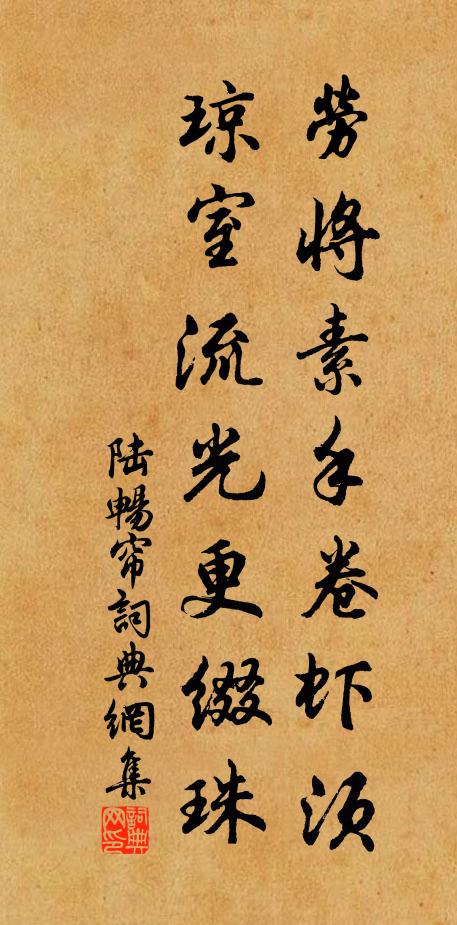 劳将素手卷虾须
琼室流光更缀珠
陆畅帘詞典網集
詞典网印